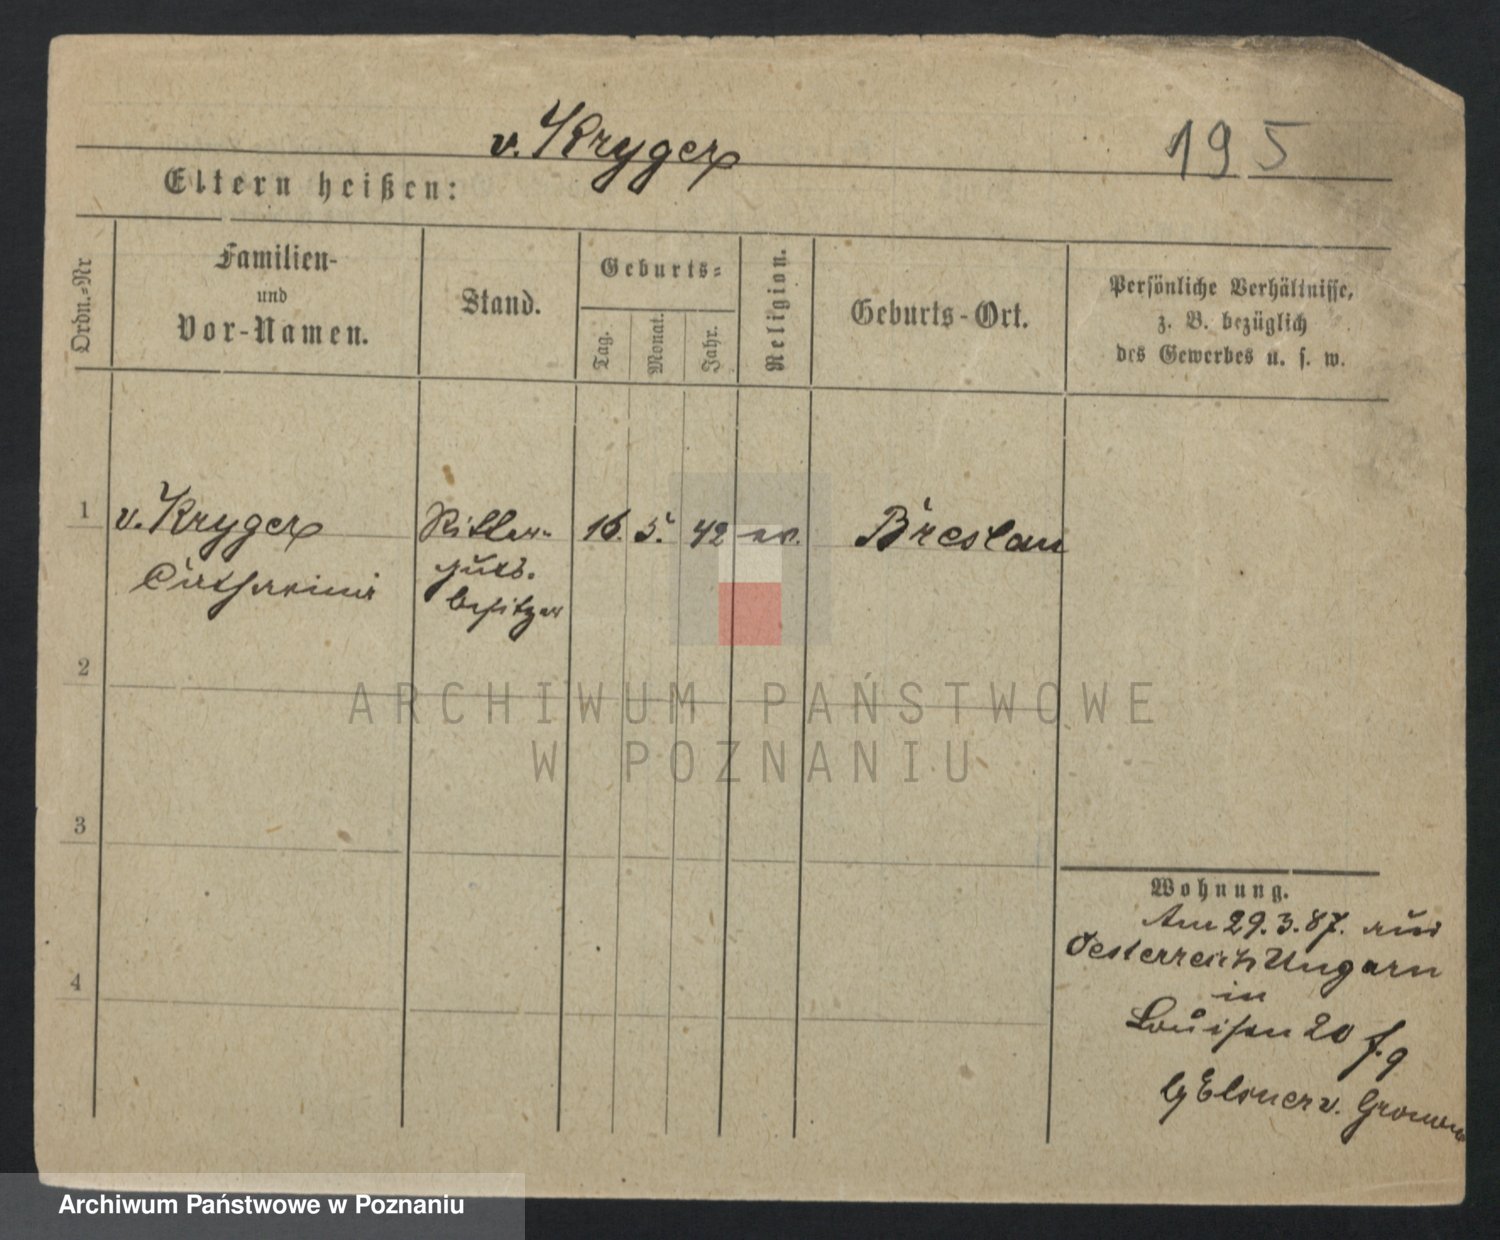 v. Kryger
195
Eltern heißen:
Ordn.-Nr
Familien-
und
Vor-Namen.
Stand.
Geburts-
Tag.
Monat.
Jahr.
Religion.
Geburts-Ort.
Persönliche Verhältnisse,
z. B. bezüglich
des Gewerbes u. s. w.
1
v. Kryger
Catharina
Ritter-
guts-
besitzer
16. 5. 42 ev.
Breslau
2
3
4
Wohnung.
Am 29.3.87. aus
Oesterreich Ungarn
in
Louisen 20
b/ Elsner v. Gronow
ARCHIWUM PAŃSTWOWE
W POZNANIU
Archiwum Państwowe w Poznaniu